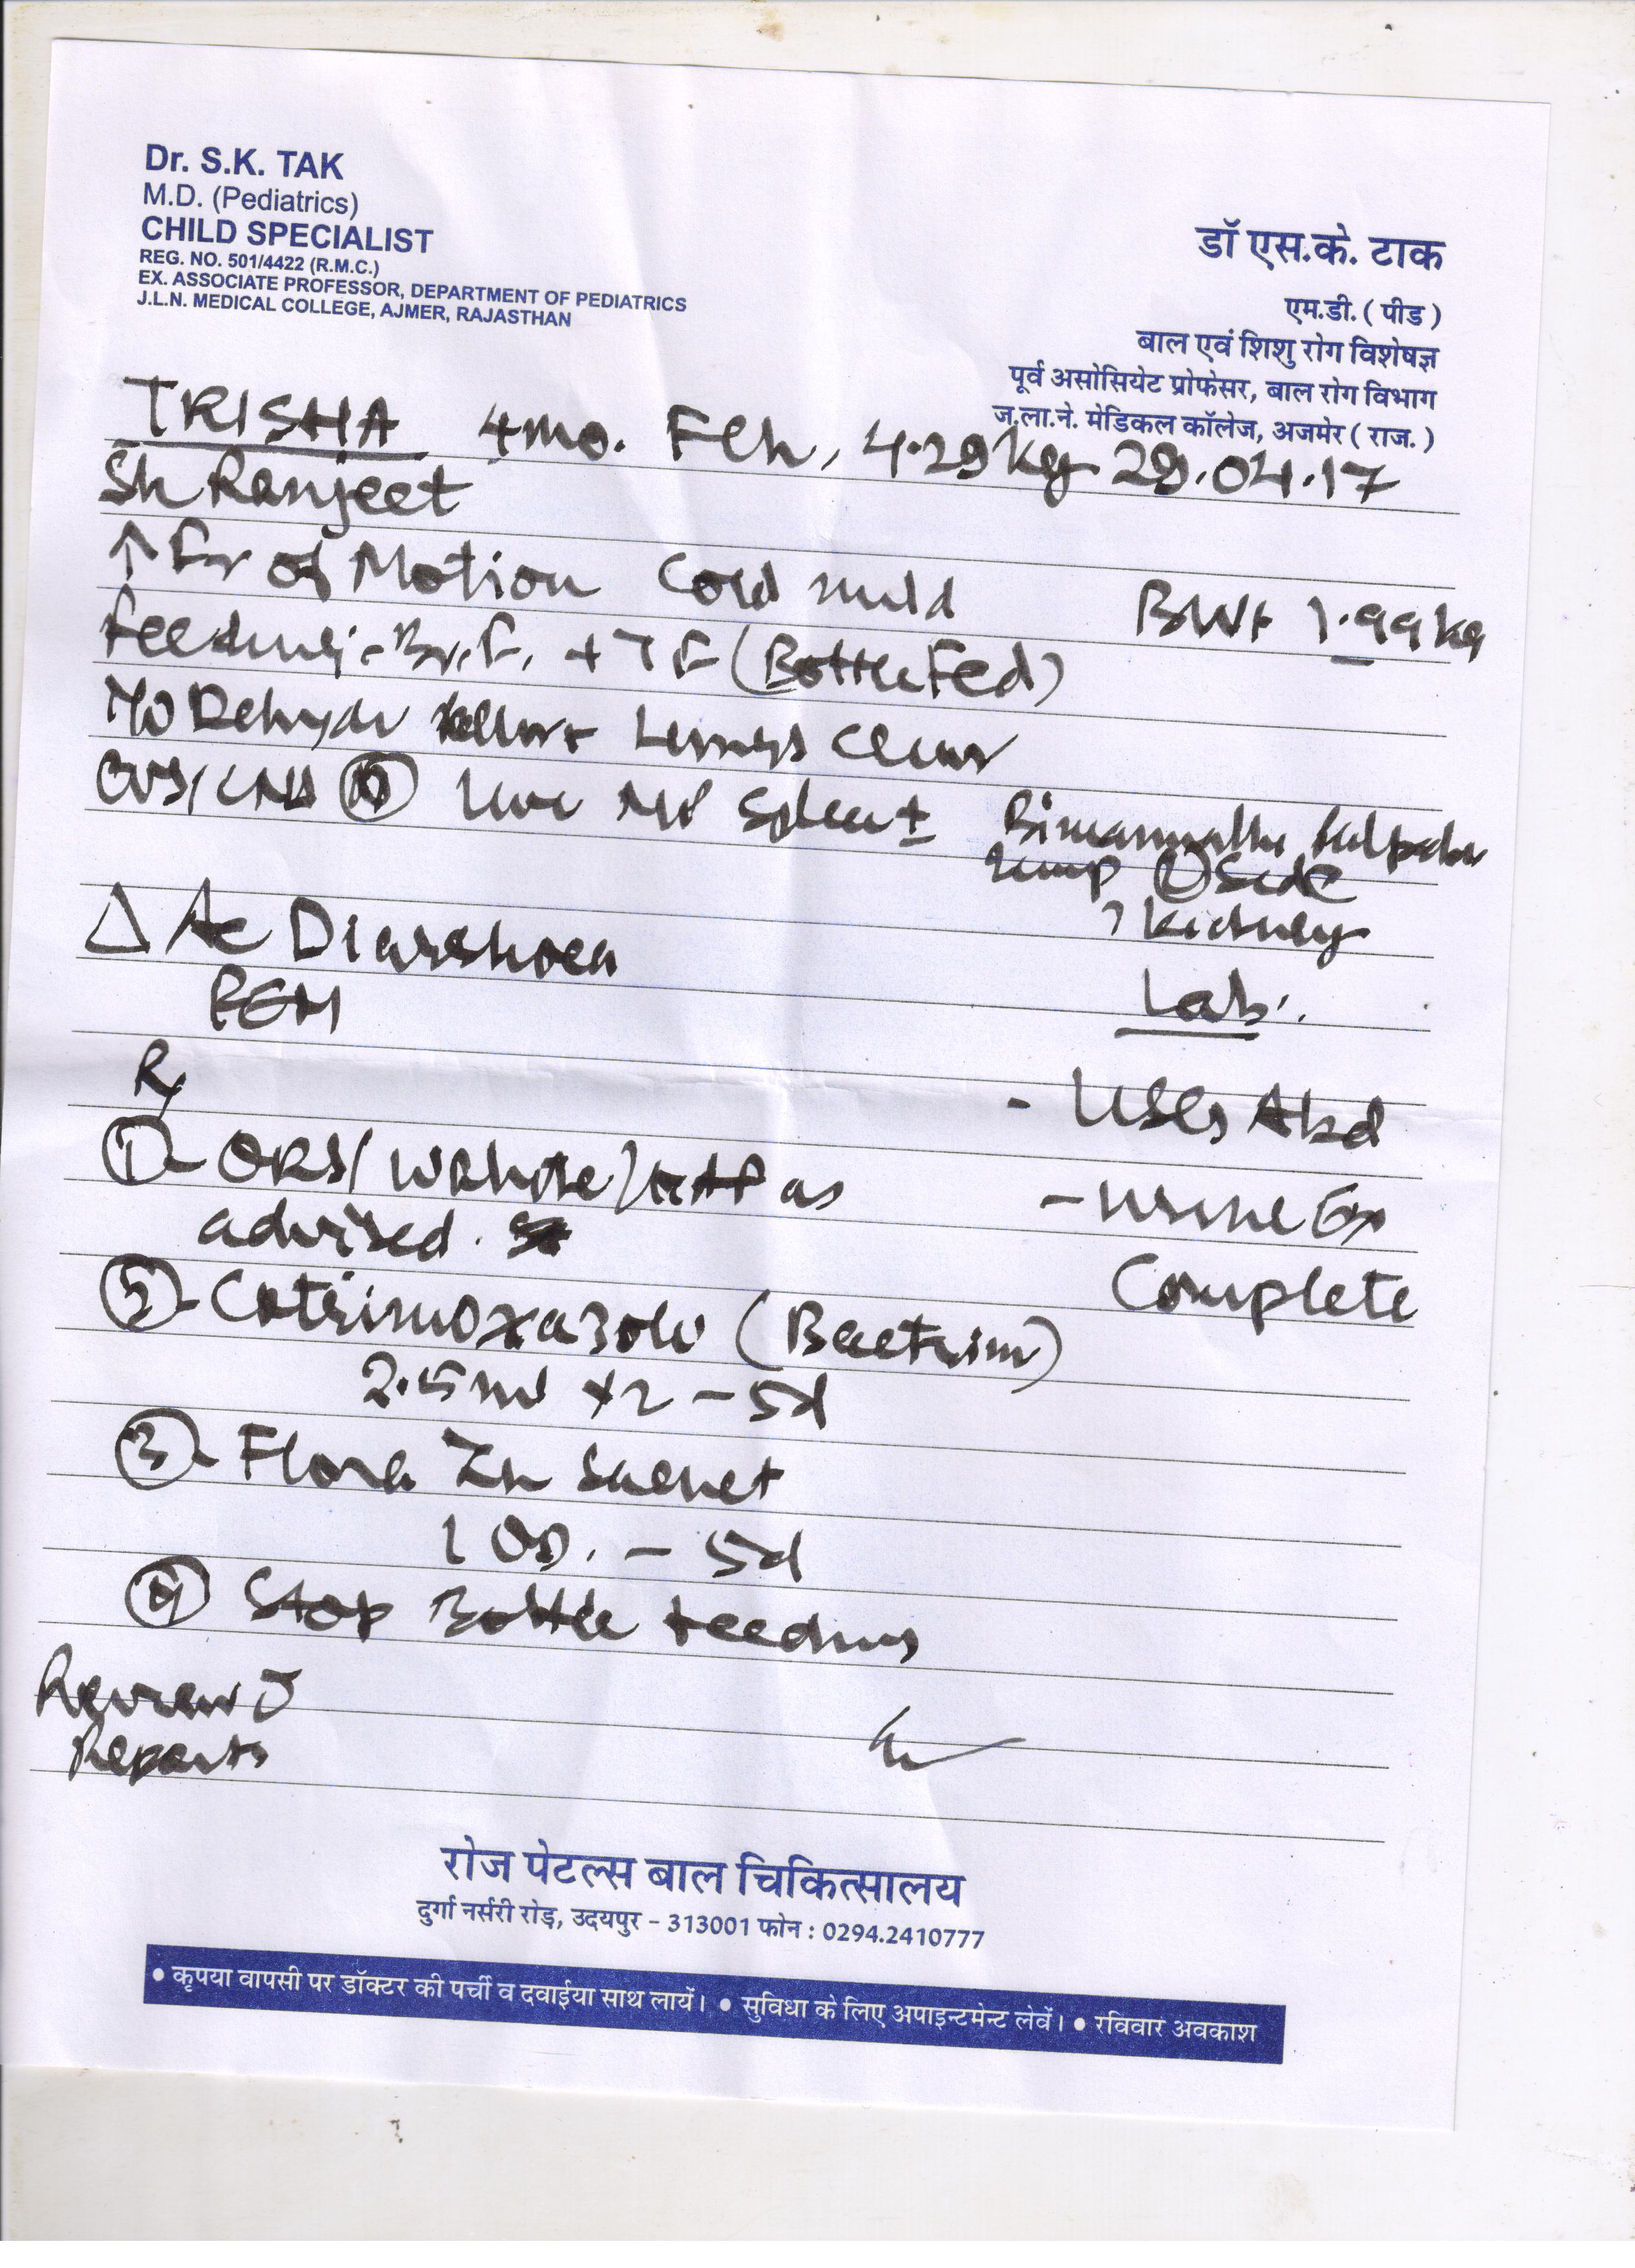 Dr. S.K. TAK
M.D. (Pediatrics)
CHILD SPECIALIST
REG. NO. 501/4422 (R.M.C.)
EX. ASSOCIATE PROFESSOR, DEPARTMENT OF PEDIATRICS
J.L.N. MEDICAL COLLEGE, AJMER, RAJASTHAN
डॉ एस.के. टाक
एम.डी. ( पीड )
बाल एवं शिशु रोग विशेषज्ञ
पूर्व असोसियेट प्रोफेसर, बाल रोग विभाग
ज.ला.ने. मेडिकल कॉलेज, अजमेर ( राज. )
TRISHA 4mo. Fch, 4.29kg 29.04.17
Sh Ranjeet
↑ Fr of Motion Cold mild BWt 1.99kg
Feeding:- Br.F. + TF (Bottle Fed)
Dehydr Lungs Clear
CVS/CNS (N) Liver NP Spleen ± Bimanually Palpable
Lump (L) Side
? Kidney
Δ Ac Diarrhoea
PEM
Lab:
Rx
- USG Abd
1- ORS/ as
- Urine Ex
advised.
Complete
2- Cotrimoxazole (Bactrim)
2.5 ml x 2 - 5d
3- Flora Zn Sachet
1 OD. - 5d
4 Stop Bottle Feeding
Review c̄
Reports
रोज पेटल्स बाल चिकित्सालय
दुर्गा नर्सरी रोड़, उदयपुर - 313001 फोन : 0294.2410777
• कृपया वापसी पर डॉक्टर की पर्ची व दवाईया साथ लायें। • सुविधा के लिए अपाइन्टमेन्ट लेवें। • रविवार अवकाश